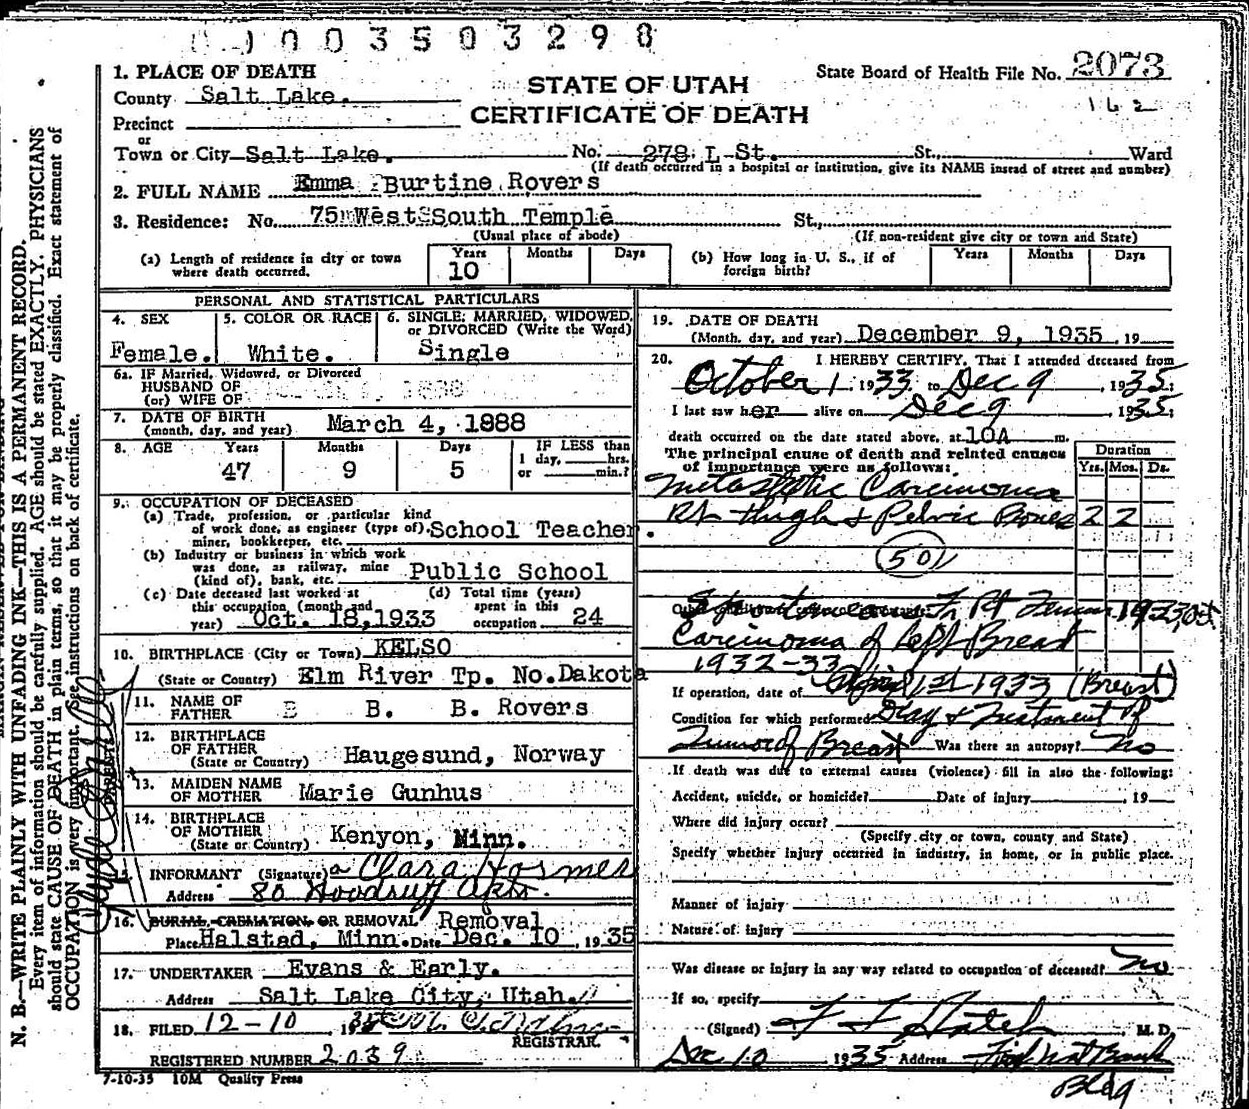 0003503298
1. PLACE OF DEATH
County Salt Lake.
STATE OF UTAH
CERTIFICATE OF DEATH
State Board of Health File No. 2073
162
Precinct
or
Town or City Salt Lake. No. 278 L St. St., Ward
(If death occurred in a hospital or institution, give its NAME instead of street and number)
2. FULL NAME Emma Burtine Rovers
3. Residence: No. 75 West South Temple St.,
(Usual place of abode) (If non-resident give city or town and State)
(a) Length of residence in city or town where death occurred. Years 10 Months Days
(b) How long in U. S., if of foreign birth? Years Months Days
PERSONAL AND STATISTICAL PARTICULARS
4. SEX Female.
5. COLOR OR RACE White.
6. SINGLE, MARRIED, WIDOWED, or DIVORCED (Write the Word) Single
6a. IF Married, Widowed, or Divorced
HUSBAND OF
(or) WIFE OF
7. DATE OF BIRTH
(month, day, and year) March 4, 1888
8. AGE Years 47 Months 9 Days 5 IF LESS than 1 day, hrs. or min.?
9. OCCUPATION OF DECEASED
(a) Trade, profession, or particular kind
of work done, as engineer (type of), School Teacher.
miner, bookkeeper, etc.
(b) Industry or business in which work
was done, as railway, mine
(kind of), bank, etc. Public School
(c) Date deceased last worked at
this occupation, (month and
year) Oct. 18, 1933
(d) Total time (years)
spent in this
occupation 24
10. BIRTHPLACE (City or Town) KELSO
(State or Country) Elm River Tp. No. Dakota
11. NAME OF
FATHER B. B. Rovers
12. BIRTHPLACE
OF FATHER
(State or Country) Haugesund, Norway
13. MAIDEN NAME
OF MOTHER Marie Gunhus
14. BIRTHPLACE
OF MOTHER
(State or Country) Kenyon, Minn.
15. INFORMANT (Signature) Clara Hosmer
Address 80 Woodruff Apts.
16. BURIAL, CREMATION, OR REMOVAL Removal
Place Halstad, Minn. Date Dec. 10, 1935
17. UNDERTAKER Evans & Early.
Address Salt Lake City, Utah.
18. FILED 12-10, 19
REGISTRAR.
REGISTERED NUMBER 2039
7-10-35 10M Quality Press
19. DATE OF DEATH
(Month, day, and year) December 9, 1935, 19
20. I HEREBY CERTIFY, That I attended deceased from
October 1, 1933 to Dec 9, 1935;
I last saw her alive on Dec 9, 1935;
death occurred on the date stated above, at 10A m.
The principal cause of death and related causes
of importance were as follows:
Duration
Yrs. Mos. Ds.
Metastatic Carcinoma
Rt thigh & Pelvic Bones 2 2
(50)
Fr Rt Femur
Carcinoma of Left Breast
1932-33
If operation, date of April 1st 1933 (Breast)
Condition for which performed Diag & Treatment of
Tumor of Breast Was there an autopsy? No
If death was due to external causes (violence) fill in also the following:
Accident, suicide, or homicide? Date of injury, 19
Where did injury occur?
(Specify city or town, county and State)
Specify whether injury occurred in industry, in home, or in public place.
Manner of injury
Nature of injury
Was disease or injury in any way related to occupation of deceased? No
If so, specify
(Signed) F F Hatch, M. D.
Dec 10 1935 Address First Nat Bank
Bldg
N. B.—WRITE PLAINLY WITH UNFADING INK—THIS IS A PERMANENT RECORD.
Every item of information should be carefully supplied. AGE should be stated EXACTLY. PHYSICIANS
should state CAUSE OF DEATH in plain terms, so that it may be properly classified. Exact statement of
OCCUPATION is very important. See instructions on back of certificate.